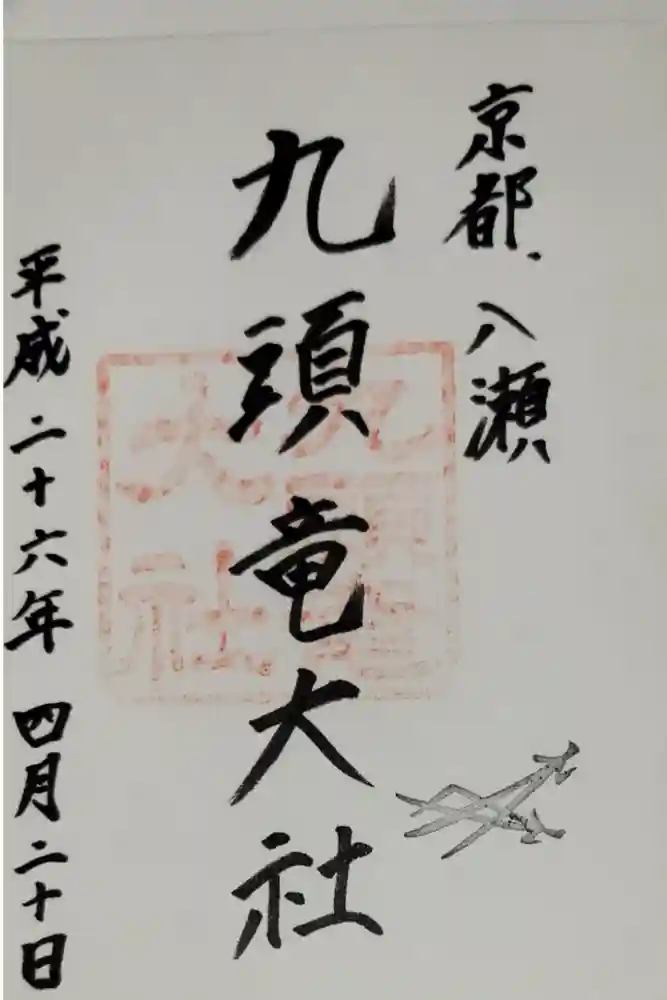 京都、八瀬
九頭竜大社
平成二十六年 四月二十日
九頭竜
大社